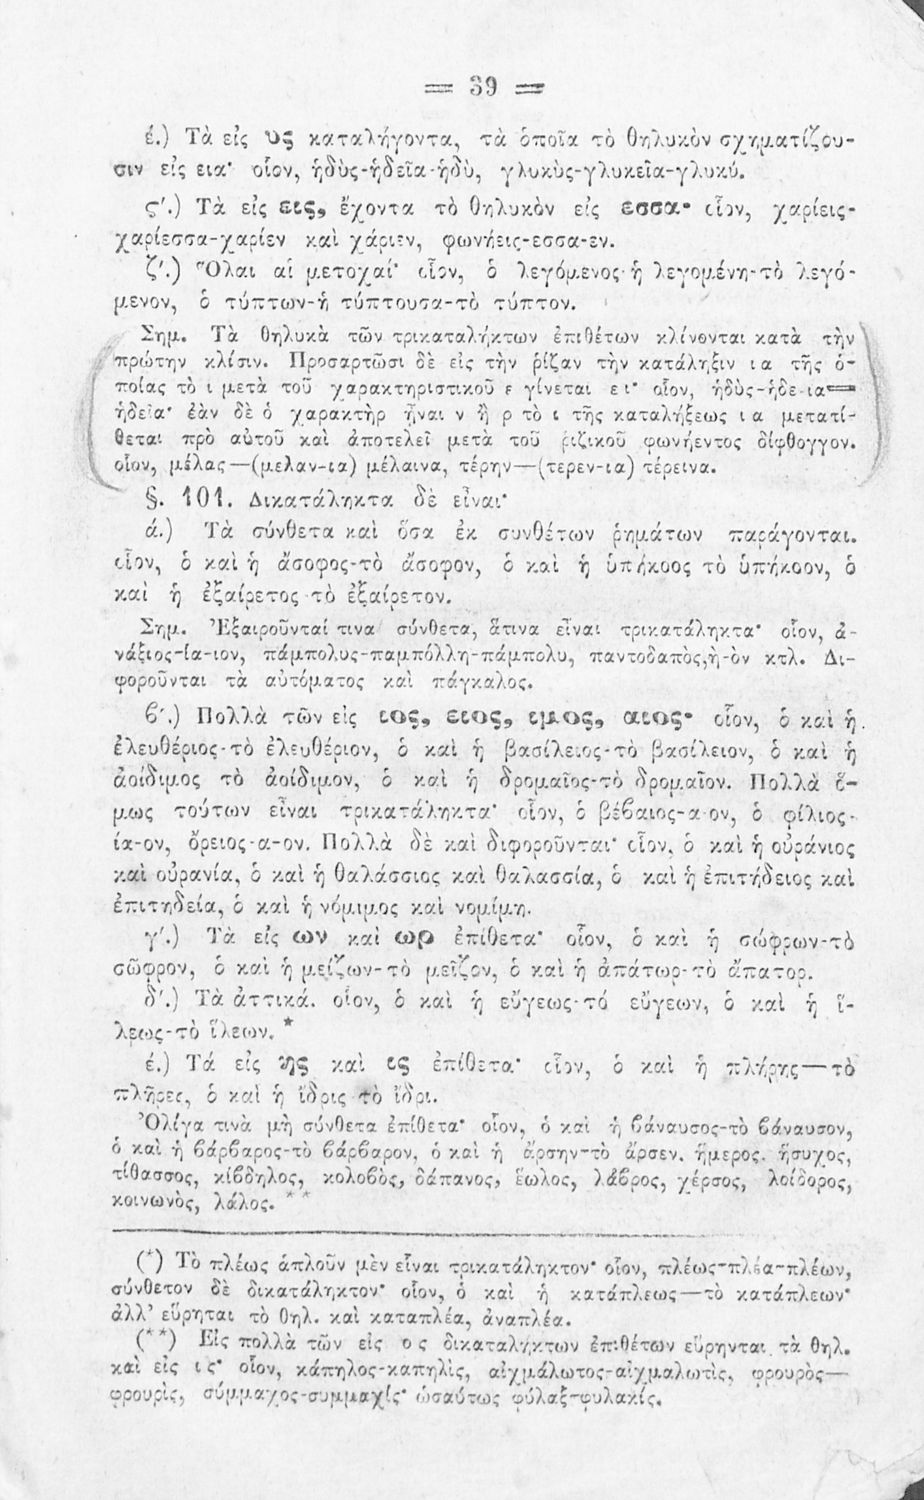 = 39 =
έ.) Τὰ εἰς υς καταλήγοντα, τὰ ὁποῖα τὸ θηλυκὸν σχηματίζου-
σιν εἰς εια· οἷον, ἡδὺς-ἡδεῖα-ἡδὺ, γλυκὺς-γλυκεῖα-γλυκύ.
ς΄.) Τὰ εἰς εις, ἔχοντα τὸ θηλυκὸν εἰς εσσα· οἷον, χαρίεις-
χαρίεσσα-χαρίεν καὶ χάριεν, φωνήεις-εσσα-εν.
ζ΄.) Ὅλαι αἱ μετοχαί· οἷον, ὁ λεγόμενος-ἡ λεγομένη-τὸ λεγό-
μενον, ὁ τύπτων-ἡ τύπτουσα-τὸ τύπτον.
Σημ. Τὰ θηλυκὰ τῶν τρικαταλήκτων ἐπιθέτων κλίνονται κατὰ τὴν
πρώτην κλίσιν. Προσαρτῶσι δὲ εἰς τὴν ῥίζαν τὴν κατάληξιν ι α τῆς ὁ-
ποίας τὸ ι μετὰ τοῦ χαρακτηριστικοῦ ε γίνεται ε ι· οἷον, ἡδὺς-ἡδε-ια=
ἡδεῖα· ἐὰν δὲ ὁ χαρακτὴρ ᾖναι ν ἢ ρ τὸ ι τῆς καταλήξεως ι α μετατί-
θεται πρὸ αὐτοῦ καὶ ἀποτελεῖ μετὰ τοῦ ῥιζικοῦ φωνήεντος δίφθογγον.
οἷον, μέλας—(μελαν-ια) μέλαινα, τέρην—(τερεν-ια) τέρεινα.
§. 101. Δικατάληκτα δὲ εἶναι·
ά.) Τὰ σύνθετα καὶ ὅσα ἐκ συνθέτων ῥημάτων παράγονται.
οἷον, ὁ καὶ ἡ ἄσοφος-τὸ ἄσοφον, ὁ καὶ ἡ ὑπήκοος τὸ ὑπήκοον, ὁ
καὶ ἡ ἐξαίρετος-τὸ ἐξαίρετον.
Σημ. Ἐξαιροῦνταί τινα σύνθετα, ἅτινα εἶναι τρικατάληκτα· οἷον, ἀ-
νάξιος-ία-ιον, πάμπολυς-παμπόλλη-πάμπολυ, παντοδαπὸς,ὴ-ὸν κτλ. Δι-
φοροῦνται τὰ αὐτόματος καὶ πάγκαλος.
ϐ΄.) Πολλὰ τῶν εἰς ιος, ειος, ιμος, αιος· οἷον, ὁ καὶ ἡ
ἐλευθέριος-τὸ ἐλευθέριον, ὁ καὶ ἡ βασίλειος-τὸ βασίλειον, ὁ καὶ ἡ
ἀοίδιμος τὸ ἀοίδιμον, ὁ καὶ ἡ δρομαῖος-τὸ δρομαῖον. Πολλὰ ὅ-
μως τούτων εἶναι τρικατάληκτα· οἷον, ὁ βέϐαιος-α-ον, ὁ φίλιος-
ία-ον, ὄρειος-α-ον. Πολλὰ δὲ καὶ διφοροῦνται· οἷον, ὁ καὶ ἡ οὐράνιος
καὶ οὐρανία, ὁ καὶ ἡ θαλάσσιος καὶ θαλασσία, ὁ καὶ ἡ ἐπιτήδειος καὶ
ἐπιτηδεία, ὁ καὶ ἡ νόμιμος καὶ νομίμη.
γ΄.) Τὰ εἰς ων καὶ ωρ ἐπίθετα· οἷον, ὁ καὶ ἡ σώφρων-τὸ
σῶφρον, ὁ καὶ ἡ μείζων-τὸ μεῖζον, ὁ καὶ ἡ ἀπάτωρ-τὸ ἄπατορ.
δ΄.) Τὰ ἀττικά. οἷον, ὁ καὶ ἡ εὔγεως-τό εὔγεων, ὁ καὶ ἡ ἵ-
λεως-τὸ ἵλεων. *
έ.) Τά εἰς ης καὶ ις ἐπίθετα· οἷον, ὁ καὶ ἡ πλήρης—τὸ
πλῆρες, ὁ καὶ ἡ ἴδρις τὸ ἴδρι.
Ὀλίγα τινὰ μὴ σύνθετα ἐπίθετα· οἷον, ὁ καὶ ἡ βάναυσος-τὸ βάναυσον,
ὁ καὶ ἡ βάρβαρος-τὸ βάρβαρον, ὁ καὶ ἡ ἄρσην-τὸ ἄρσεν. ἥμερος. ἥσυχος,
τίθασσος, κίβδηλος, κολοβὸς, δάπανος, ἕωλος, λάβρος, χέρσος, λοίδορος,
κοινωνὸς, λάλος. **
(*) Τὸ πλέως ἁπλοῦν μὲν εἶναι τρικατάληκτον· οἷον, πλέως-πλέα-πλέων,
σύνθετον δὲ δικατάληκτον· οἷον, ὁ καὶ ἡ κατάπλεως—τὸ κατάπλεων·
ἀλλ’ εὕρηται τὸ θηλ. καὶ καταπλέα, ἀναπλέα.
(**) Εἰς πολλὰ τῶν εἰς ο ς δικαταλήκτων ἐπιθέτων εὕρηνται τὰ θηλ.
καὶ εἰς ι ς· οἷον, κάπηλος-καπηλὶς, αἰχμάλωτος-αἰχμαλωτὶς, φρουρὸς—
φρουρὶς, σύμμαχος-συμμαχίς· ὡσαύτως φύλαξ-φυλακίς.